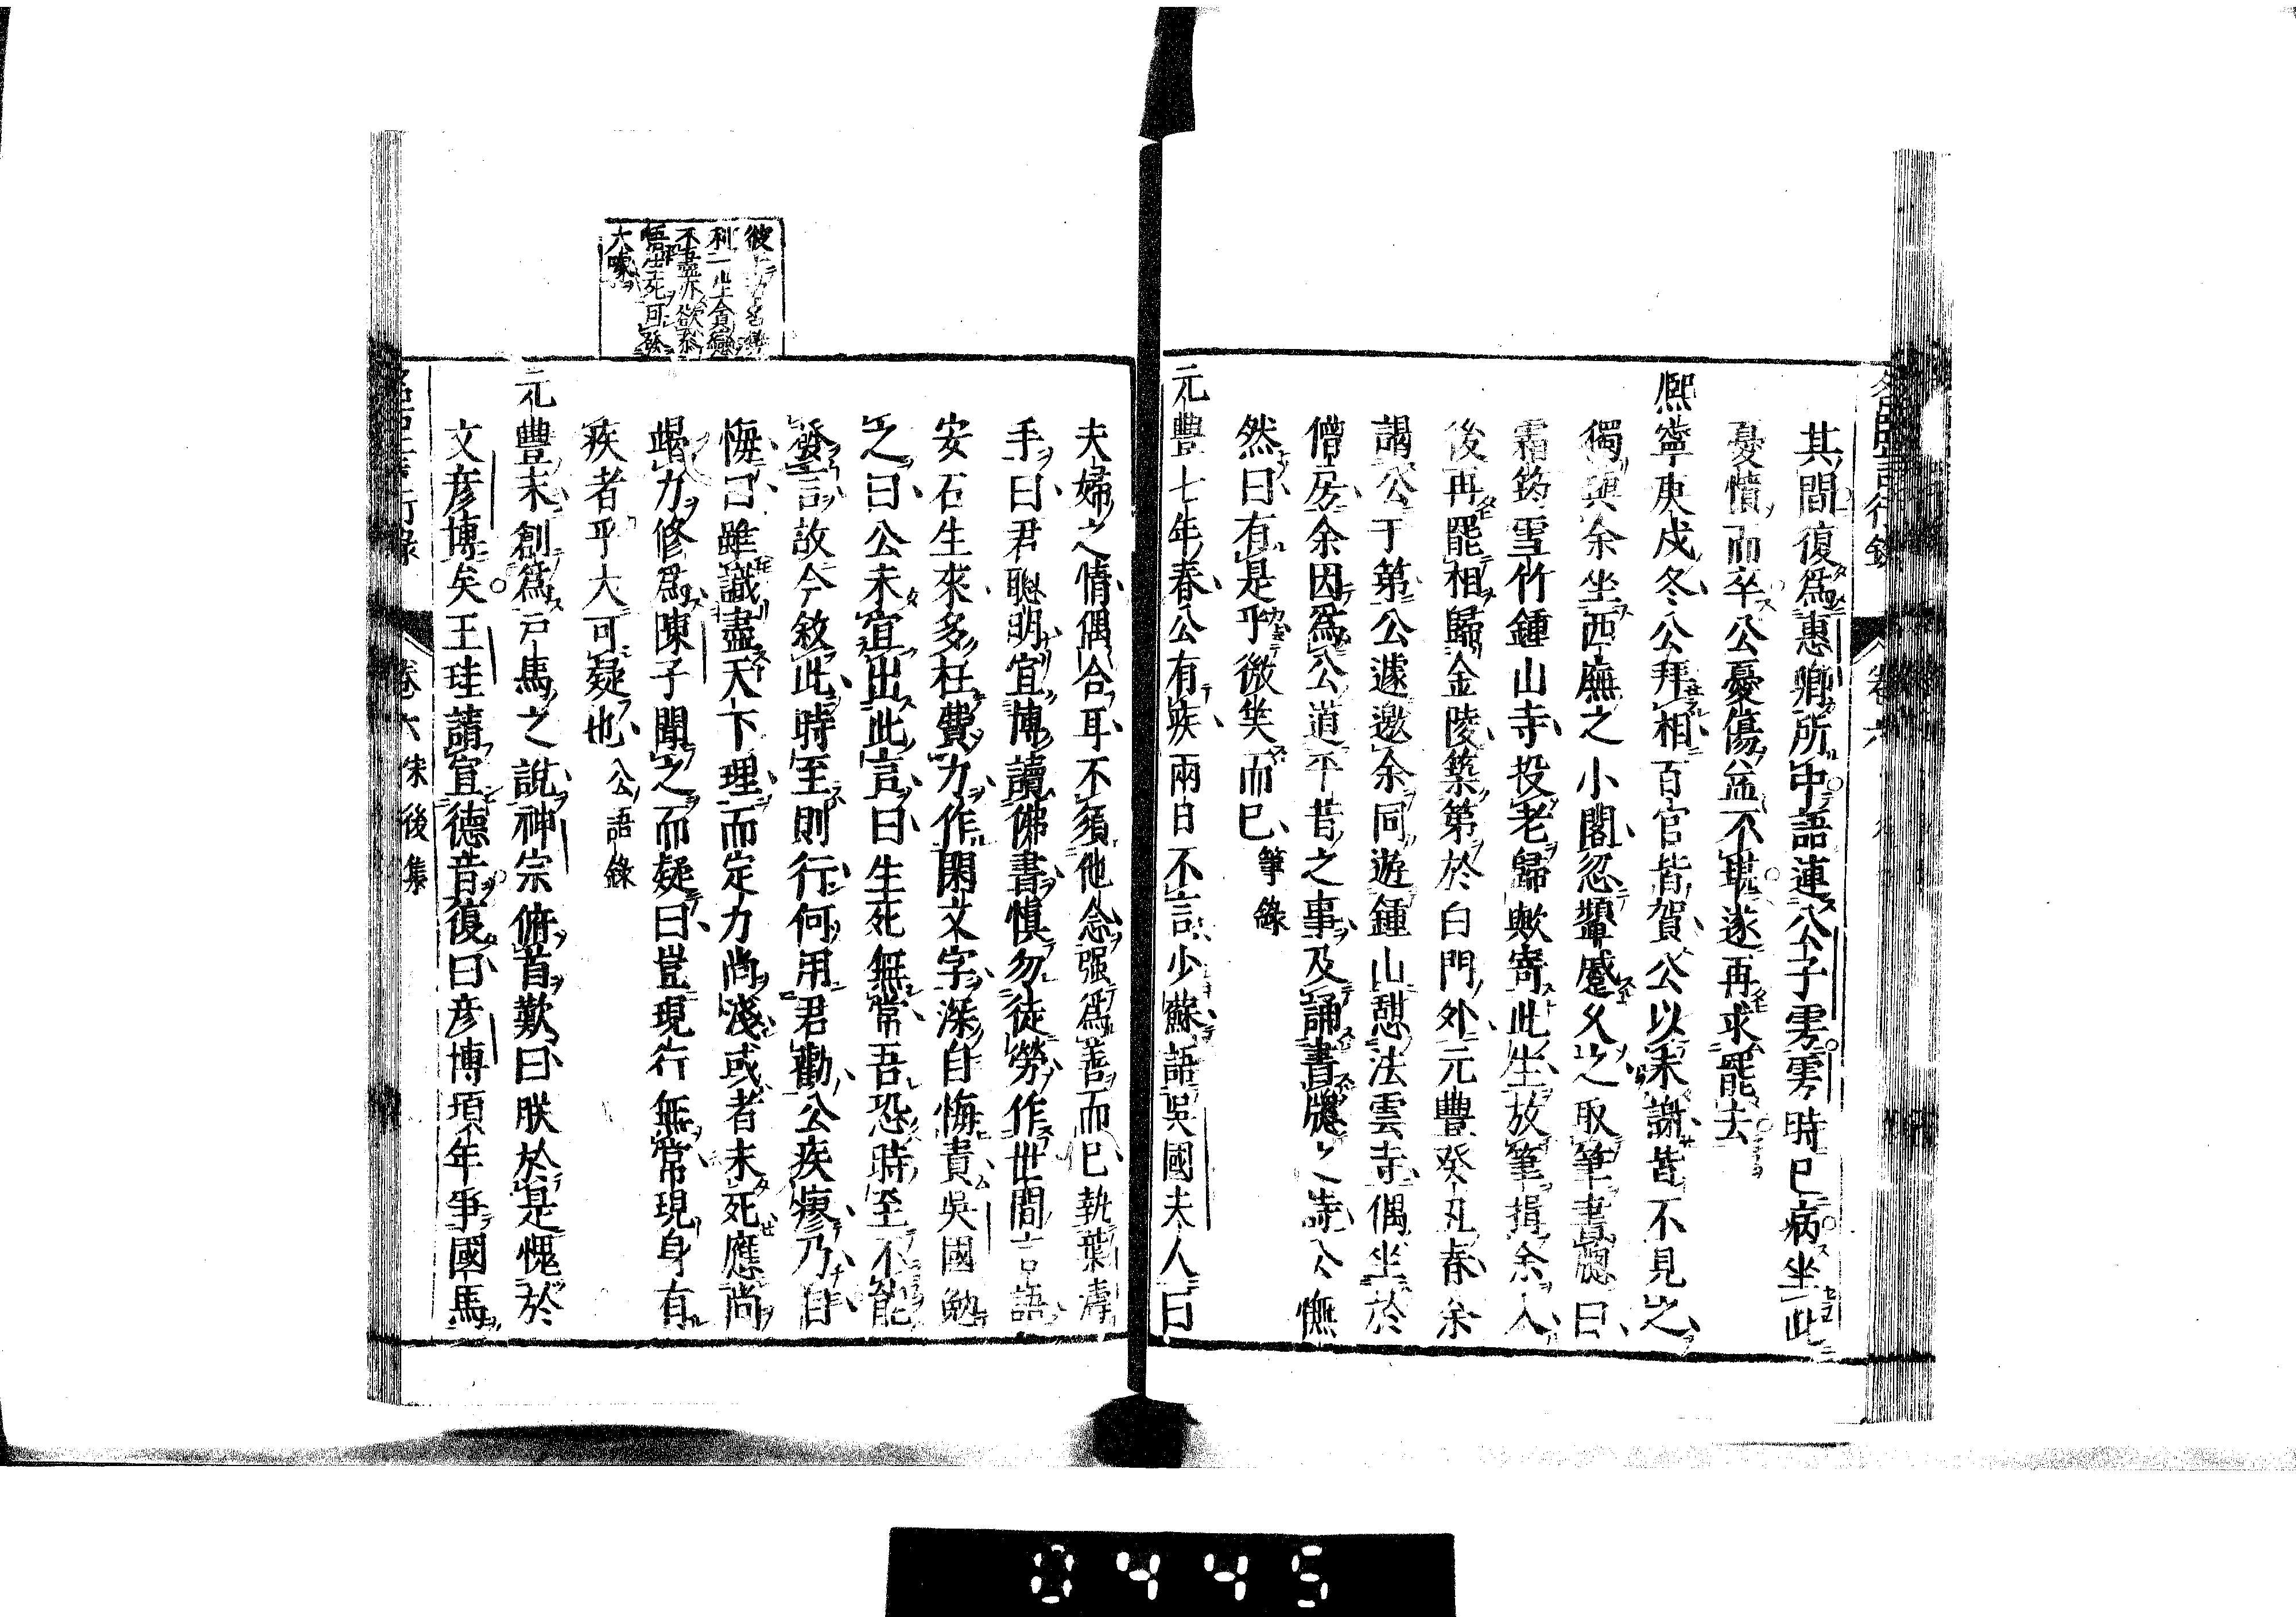 其間復爲惠卿所中語連公子雱雱時已病坐此
憂憤而卒公憂傷益不堪遂再求罷去
熈寧庚戌冬公拜相百官皆賀公以未謝皆不見之
獨與余坐西廡之小閣忽顰蹙久之取筆書牕曰
霜筠雪竹鍾山寺投老歸歟寄此生放筆揖余入
後再罷相歸金陵築第於白門外元豐癸丑春余
謁公于第公遽邀余同遊鍾山憇法雲寺偶坐於
僧房余因爲公道平昔之事及誦書牕之詩公憮
然曰有是乎微笑而已 筆錄
元豐七年春公有疾兩日不言少蘇語吳國夫人曰
夫婦之情偶合耳不須他念强爲善而已執葉濤
手曰君聰明宜博讀佛書慎勿徒勞作世間言語
安石生來多枉費力作閑文字深自悔責吳國勉
之曰公未宜出此言曰生死無常吾恐時至不能
發言故今敘此時至則行何用君勸公疾瘳乃自
悔曰雖識盡天下理而定力尚淺或者未死應尚
竭力修爲陳子聞之而疑曰豈現行無常現身有
疾者乎大可疑也 公語錄
元豐末創爲戶馬之說神宗俯首歎曰朕於是愧於
文彦博矣王珪請宣德音復曰彦博頃年爭國馬
卷六 宋後集
彼
利一生貪戀
不盡亦欲叅
悟生死可發
大噱
0445